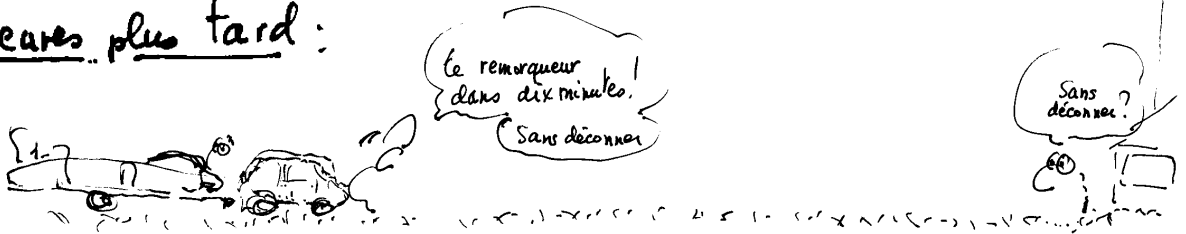 plus tard :
te remorqueur
dans dix minutes !
Sans déconner
Sans
déconner ?